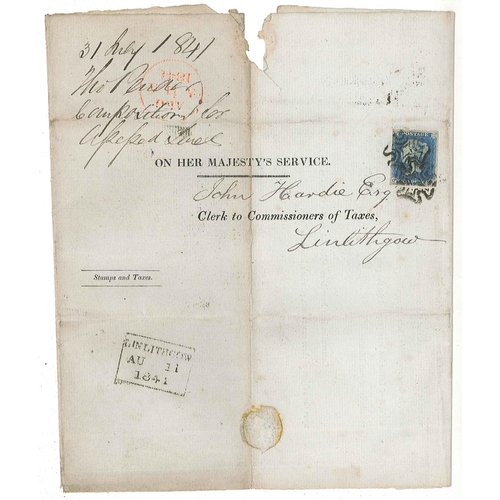 31 July 1841
Tho
Composition for
Assessed
1841
AUG
POSTAGE
ON HER MAJESTY'S SERVICE.
John Hardie Esq
Clerk to Commissioners of Taxes,
Linlithgow
Stamps and Taxes.
LINLITHGOW
AU 11
1841